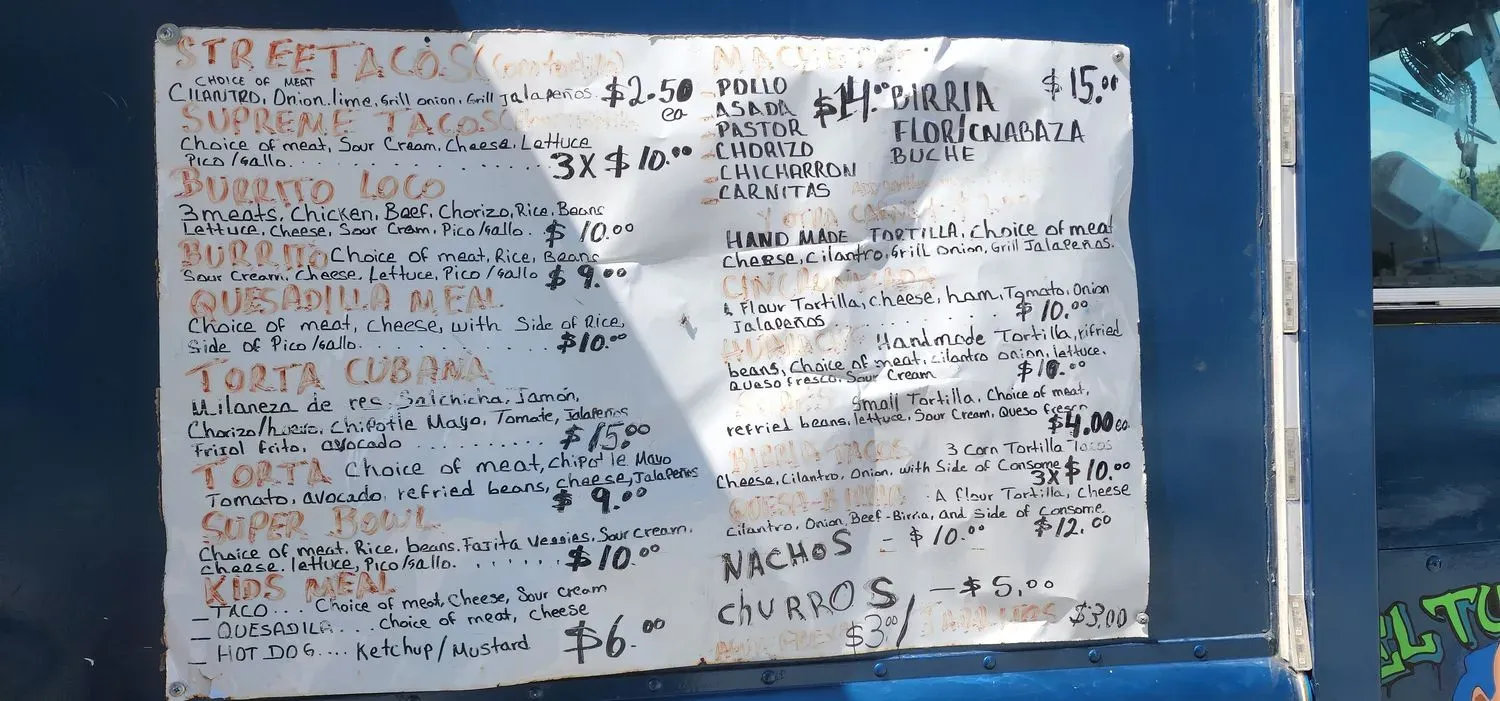 STREETACOS (corn tortilla)
CHOICE OF MEAT
CILANTRO, Onion, lime, Grill onion, Grill Jalapeños. $2.50 ea
SUPREME TACOS
Choice of meat, Sour Cream, Cheese, Lettuce
Pico/Gallo. . . . . . . 3X $10.00
BURRITO LOCO
3 meats, Chicken, Beef, Chorizo, Rice, Beans
Lettuce, Cheese, Sour Cream, Pico/Gallo. $10.00
BURRITO Choice of meat, Rice, Beans
Sour Cream, Cheese, Lettuce, Pico/Gallo $9.00
QUESADILLA MEAL
Choice of meat, Cheese, with Side of Rice,
Side of Pico/Gallo. . . . . . . . . . $10.00
TORTA CUBANA
Milaneza de res, Salchicha, Jamón,
Chorizo/huevo, Chipotle Mayo, Tomate, Jalapeños
Frisol frito, avocado . . . . . . . . . . $15.00
TORTA Choice of meat, Chipotle Mayo
Tomato, avocado, refried beans, cheese, Jalapeños
$9.00
SUPER BOWL
Choice of meat, Rice, beans, Fajita Veggies, Sour cream,
cheese, lettuce, Pico/Gallo. . . . . . $10.00
KIDS MEAL
– TACO... Choice of meat, Cheese, Sour cream
– QUESADILA... choice of meat, cheese
– HOT DOG.... Ketchup/Mustard $6.00
MACHETE
– POLLO
– ASADA $14.00
– PASTOR
– CHORIZO
– CHICHARRON
– CARNITAS
BIRRIA $15.00
FLOR/CNABAZA
BUCHE
Y OTRA CARNE
HAND MADE TORTILLA, Choice of meat
cheese, cilantro, Grill Onion, Grill Jalapeños.
CINCRONIZADA
4 Flour Tortilla, cheese, ham, Tomato, Onion
Jalapeños . . . . . . . . . . $10.00
HUARACHE Handmade Tortilla, rifried
beans, Choice of meat, cilantro onion, lettuce,
Queso fresco, Sour Cream $10.00
SOPES Small Tortilla, Choice of meat,
refried beans, lettuce, Sour Cream, Queso fresco
$4.00 ea.
BIRRIA-TACOS 3 Corn Tortilla Tacos
Cheese, Cilantro, Onion, with Side of Consome 3X $10.00
QUESA-BIRRIA . A flour Tortilla, Cheese
cilantro, Onion, Beef-Birria, and Side of consome
$12.00
NACHOS – $10.00
CHURROS – $5.00
$3.00/ $3.00
EL TU